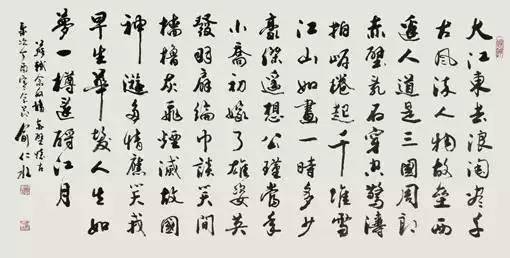 大江東去浪淘盡千
古風流人物故壘西
邊人道是三國周郎
赤壁亂石穿空驚濤
拍岸捲起千堆雪
江山如畫一時多少
豪傑遙想公瑾當年
小喬初嫁了雄姿英
發羽扇綸巾談笑間
檣櫓灰飛煙滅故國
神遊多情應笑我
早生華髮人生如
夢一樽還酹江月
蘇軾念奴嬌赤壁懷古
歲次